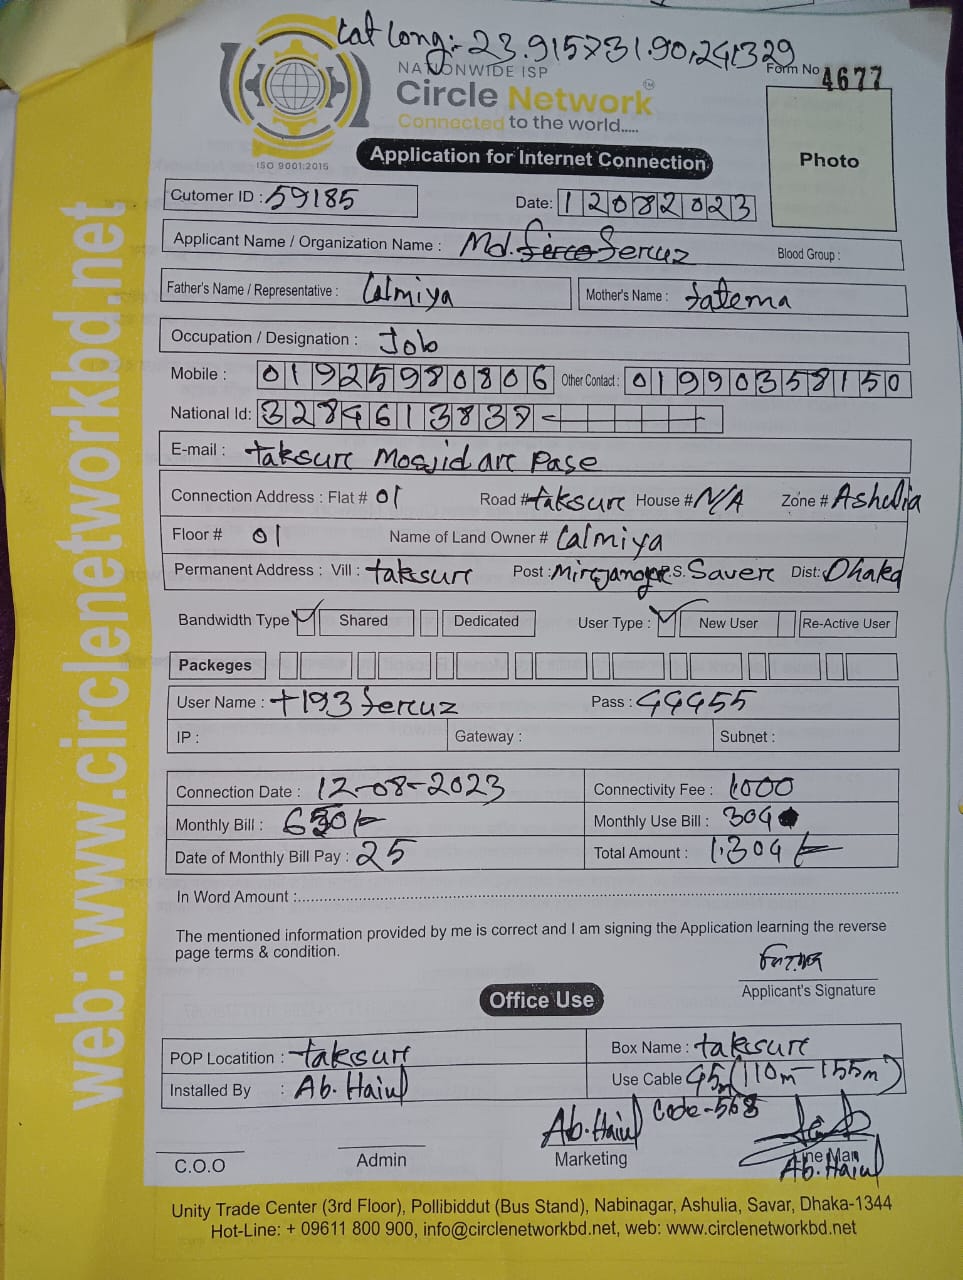 Lat Long:- 23.915731.90.241329
NATIONWIDE ISP
Form No 4677
Circle Network
Connected to the world.....
ISO 9001:2015
Application for Internet Connection
Photo
Cutomer ID : 59185
Date: 12082023
Applicant Name / Organization Name : Md. Feruz
Blood Group :
Father's Name / Representative : Lalmiya
Mother's Name : fatema
Occupation / Designation : Job
Mobile : 01925980806 Other Contact : 01990358150
National Id: 3284613839
E-mail : taksure Mosjid are Pase
Connection Address : Flat # 01 Road # taksure House # N/A Zone # Ashulia
Floor # 01 Name of Land Owner # Lalmiya
Permanent Address : Vill : taksure Post : P.S. Savere Dist: Dhaka
Bandwidth Type Shared Dedicated User Type : New User Re-Active User
Packeges
User Name : t193feruz Pass : 44455
IP : Gateway : Subnet :
Connection Date : 12-08-2023 Connectivity Fee : 1000
Monthly Bill : Monthly Use Bill : 304
Date of Monthly Bill Pay : 25 Total Amount : 1.304/-
In Word Amount :
The mentioned information provided by me is correct and I am signing the Application learning the reverse
page terms & condition.
Applicant's Signature
Office Use
POP Locatition : taksure Box Name : taksure
Installed By : Ab. Haiul Use Cable 45m (110m - 155m)
Code-568
Ab. Haiul
C.O.O Admin Marketing Line Man
Ab. Haiul
Unity Trade Center (3rd Floor), Pollibiddut (Bus Stand), Nabinagar, Ashulia, Savar, Dhaka-1344
Hot-Line: + 09611 800 900, info@circlenetworkbd.net, web: www.circlenetworkbd.net
web: www.circlenetworkbd.net